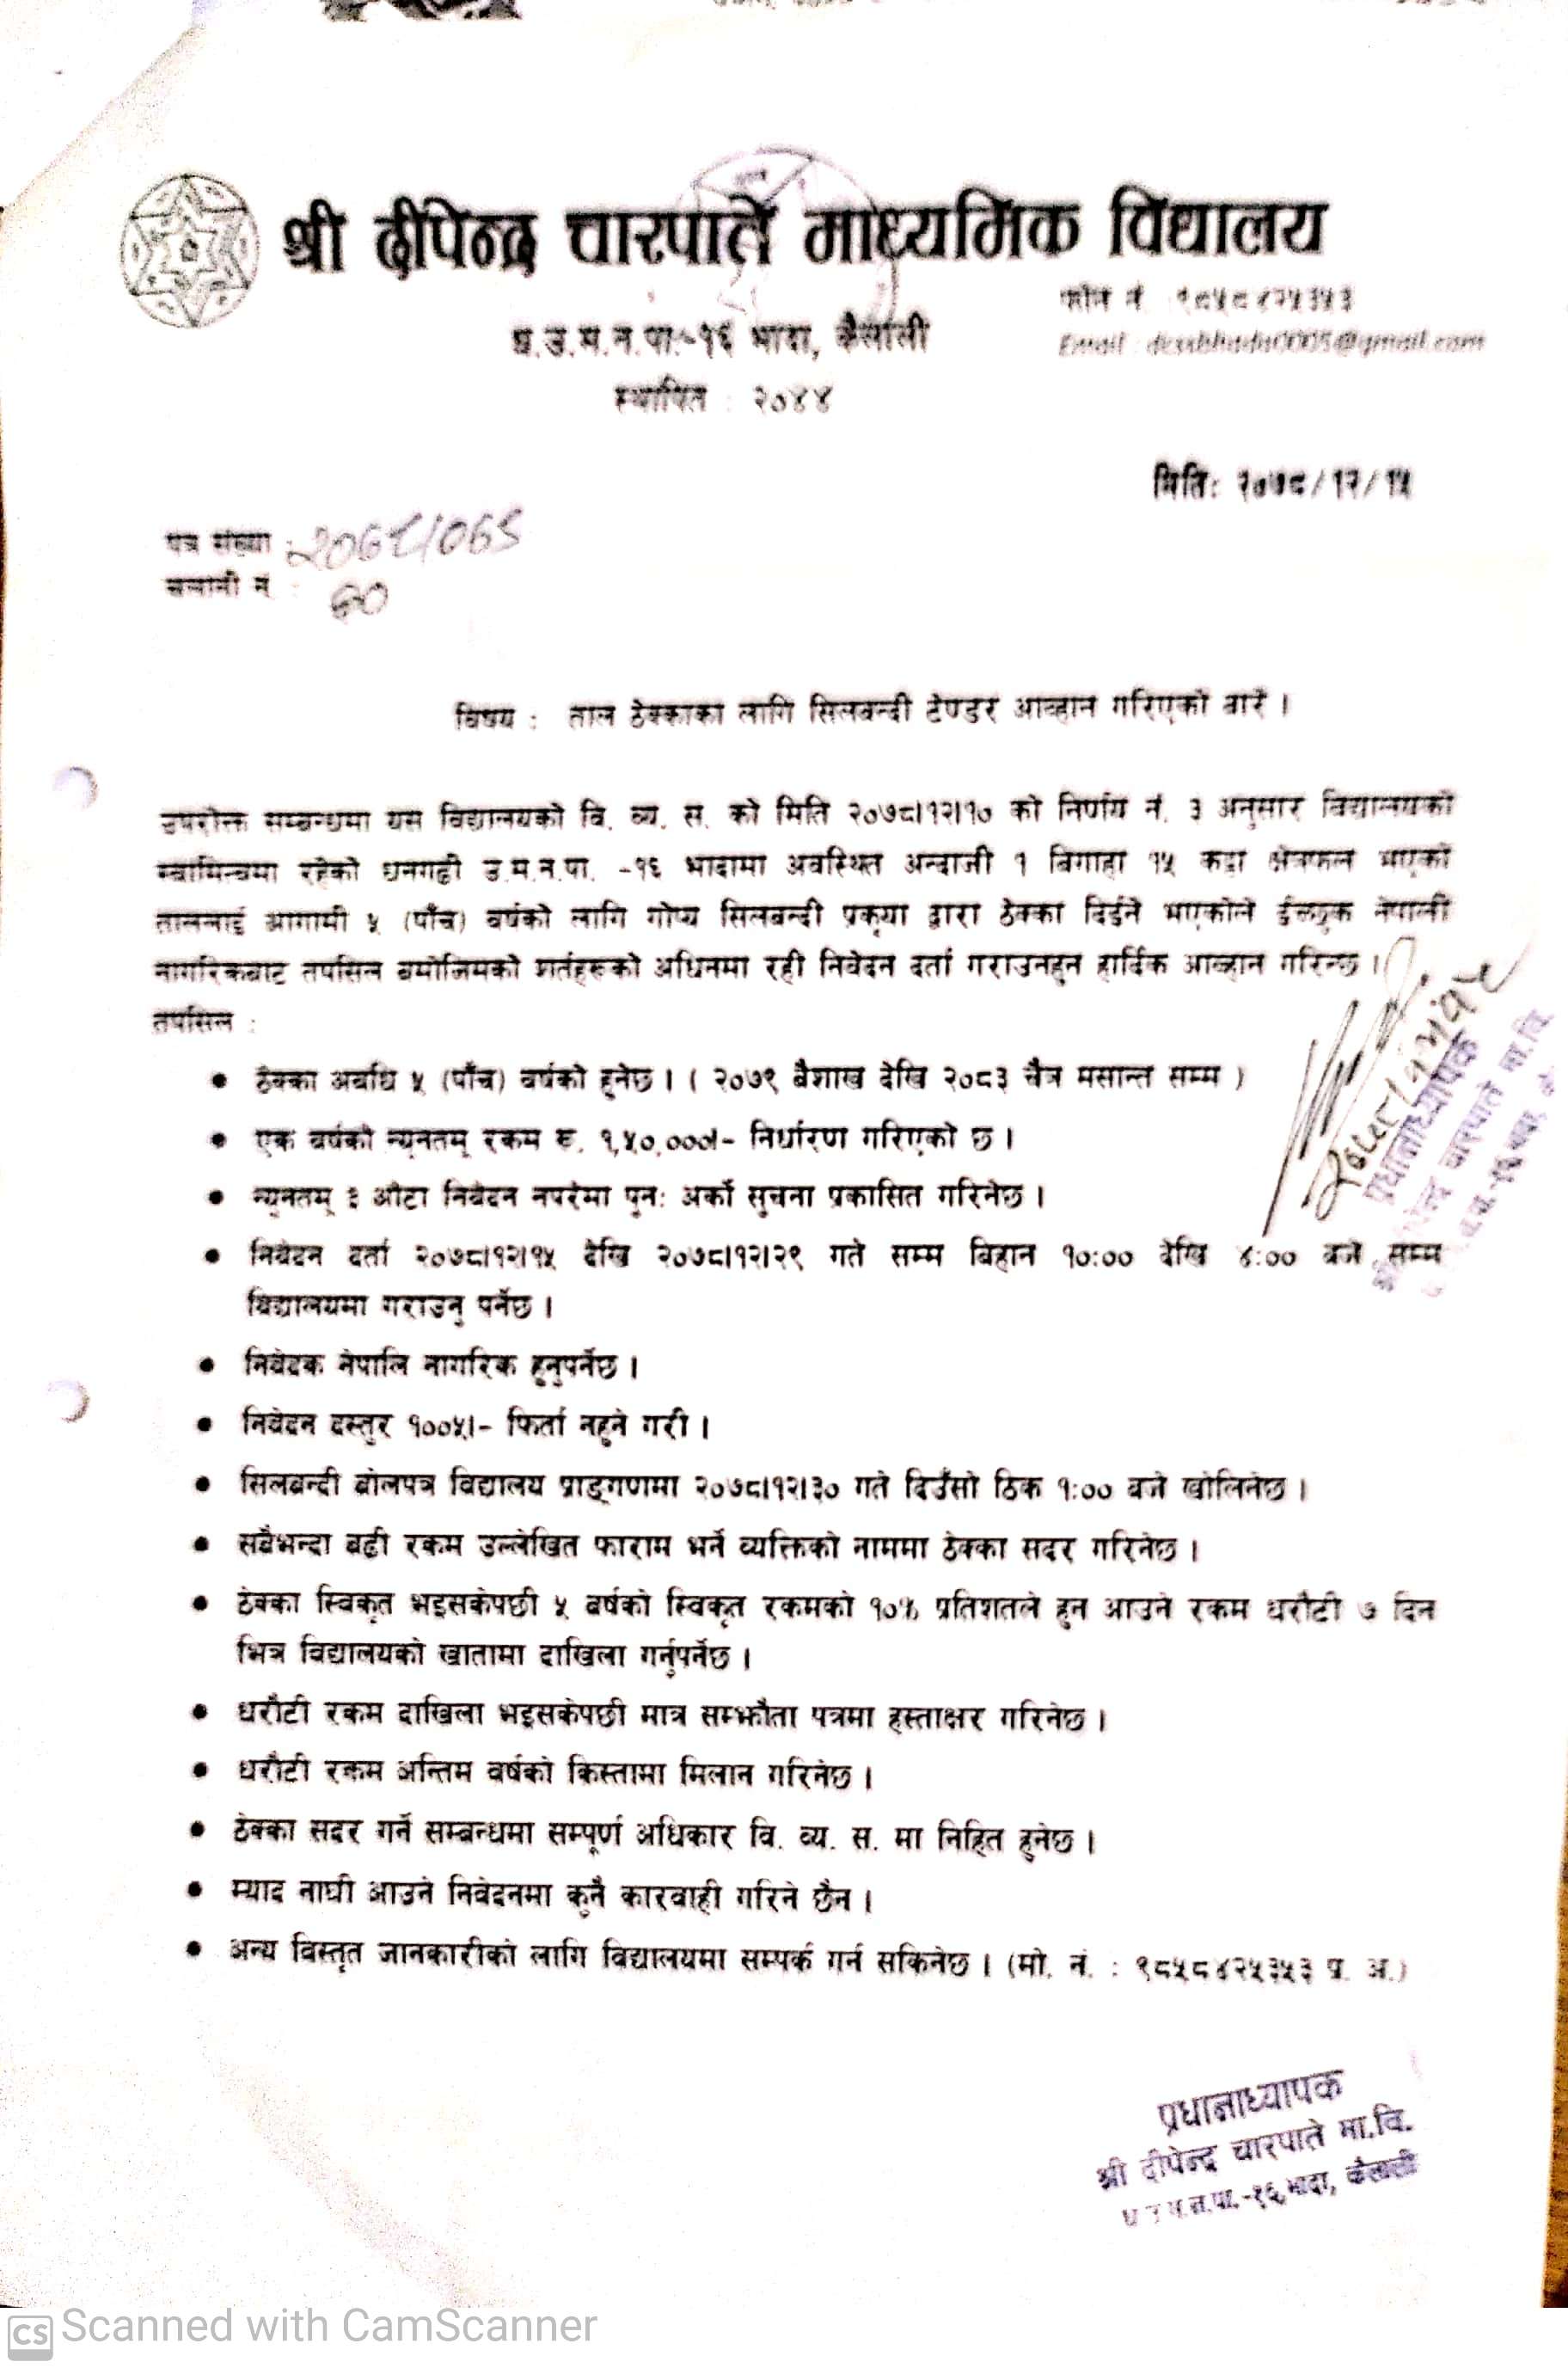 श्री दीपेन्द्र चारपाते माध्यमिक विद्यालय
फोन नं ९८५८४२५३५३
ध.उ.म.न.पा.-१६ भादा, कैलाली
Email :
स्थापित : २०४४
मिति: २०७८/१२/१५
पत्र संख्या :
चलानी नं :
विषय : ताल ठेक्काका लागि सिलबन्दी टेण्डर आव्हान गरिएको बारे ।
उपरोक्त सम्बन्धमा यस विद्यालयको वि. व्य. स. को मिति २०७८।१२।१० को निर्णय नं. ३ अनुसार विद्यालयको
स्वामित्वमा रहेको धनगढी उ.म.न.पा. -१६ भादामा अवस्थित अन्दाजी १ बिगाहा १५ कट्ठा क्षेत्रफल भएको
ताललाई आगामी ५ (पाँच) वर्षको लागि गोप्य सिलबन्दी प्रकृया द्वारा ठेक्का दिईने भएकोले ईच्छुक नेपाली
नागरिकबाट तपसिल बमोजिमको शर्तहरुको अधिनमा रही निवेदन दर्ता गराउनहुन हार्दिक आव्हान गरिन्छ ।
तपसिल :
• ठेक्का अवधि ५ (पाँच) वर्षको हुनेछ । ( २०७९ बैशाख देखि २०८३ चैत्र मसान्त सम्म )
• एक वर्षको न्यूनतम् रकम रु. १,५०,०००।- निर्धारण गरिएको छ ।
• न्युनतम् ३ औटा निवेदन नपरेमा पुन: अर्को सुचना प्रकासित गरिनेछ ।
• निवेदन दर्ता २०७८।१२।१५ देखि २०७८।१२।२९ गते सम्म बिहान १०:०० देखि ४:०० बजे सम्म
विद्यालयमा गराउनु पर्नेछ ।
• निवेदक नेपालि नागरिक हुनुपर्नेछ ।
• निवेदन दस्तुर १००५।- फिर्ता नहुने गरी ।
• सिलबन्दी बोलपत्र विद्यालय प्राङ्गणमा २०७८।१२।३० गते दिउँसो ठिक १:०० बजे खोलिनेछ ।
• सबैभन्दा बढी रकम उल्लेखित फाराम भर्ने व्यक्तिको नाममा ठेक्का सदर गरिनेछ ।
• ठेक्का स्विकृत भइसकेपछी ५ वर्षको स्विकृत रकमको १०% प्रतिशतले हुन आउने रकम धरौटी ७ दिन
भित्र विद्यालयको खातामा दाखिला गर्नुपर्नेछ ।
• धरौटी रकम दाखिला भइसकेपछी मात्र सम्झौता पत्रमा हस्ताक्षर गरिनेछ ।
• धरौटी रकम अन्तिम वर्षको किस्तामा मिलान गरिनेछ ।
• ठेक्का सदर गर्ने सम्बन्धमा सम्पूर्ण अधिकार वि. व्य. स. मा निहित हुनेछ ।
• म्याद नाघी आउने निवेदनमा कुनै कारवाही गरिने छैन ।
• अन्य विस्तृत जानकारीको लागि विद्यालयमा सम्पर्क गर्न सकिनेछ । (मो. नं. : ९८५८४२५३५३ प्र. अ.)
प्रधानाध्यापक
प्रधानाध्यापक
श्री दीपेन्द्र चारपाते मा.वि.
ध.उ.म.न.पा.-१६,भादा, कैलाली
CS Scanned with CamScanner